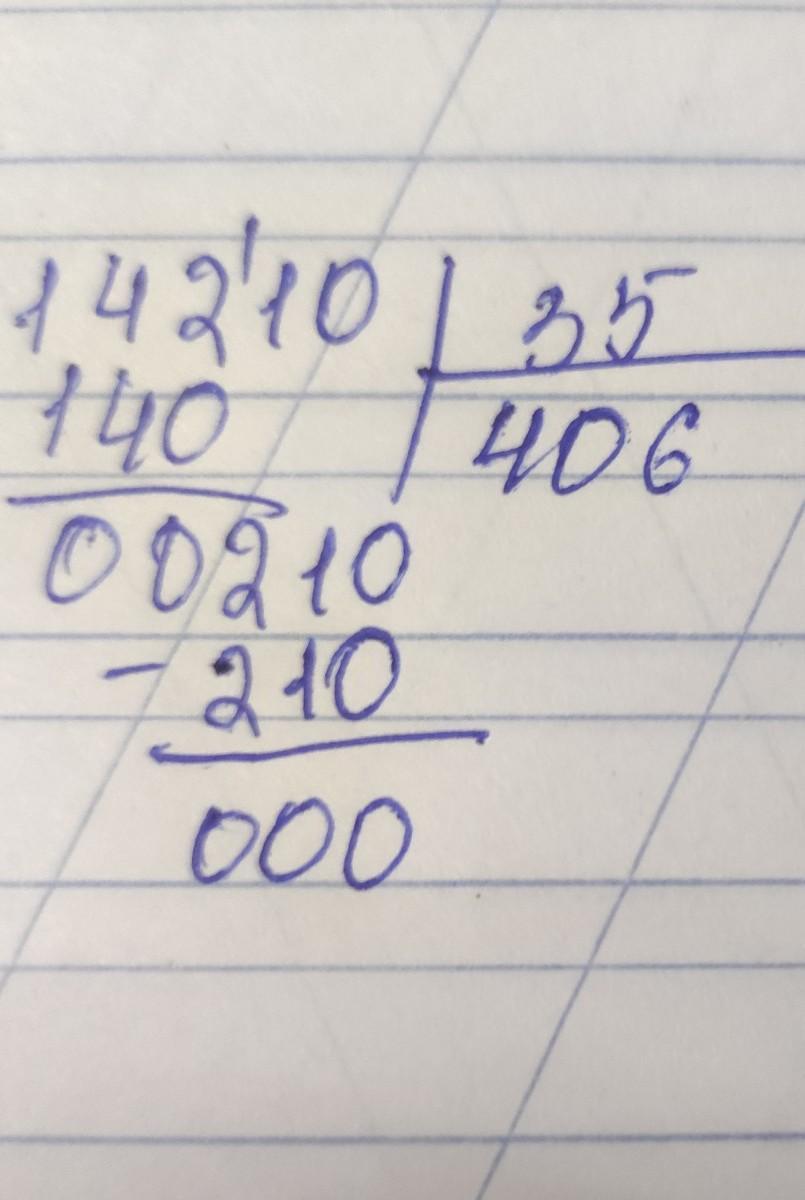 142'10 35
140 406
00210
- 210
000